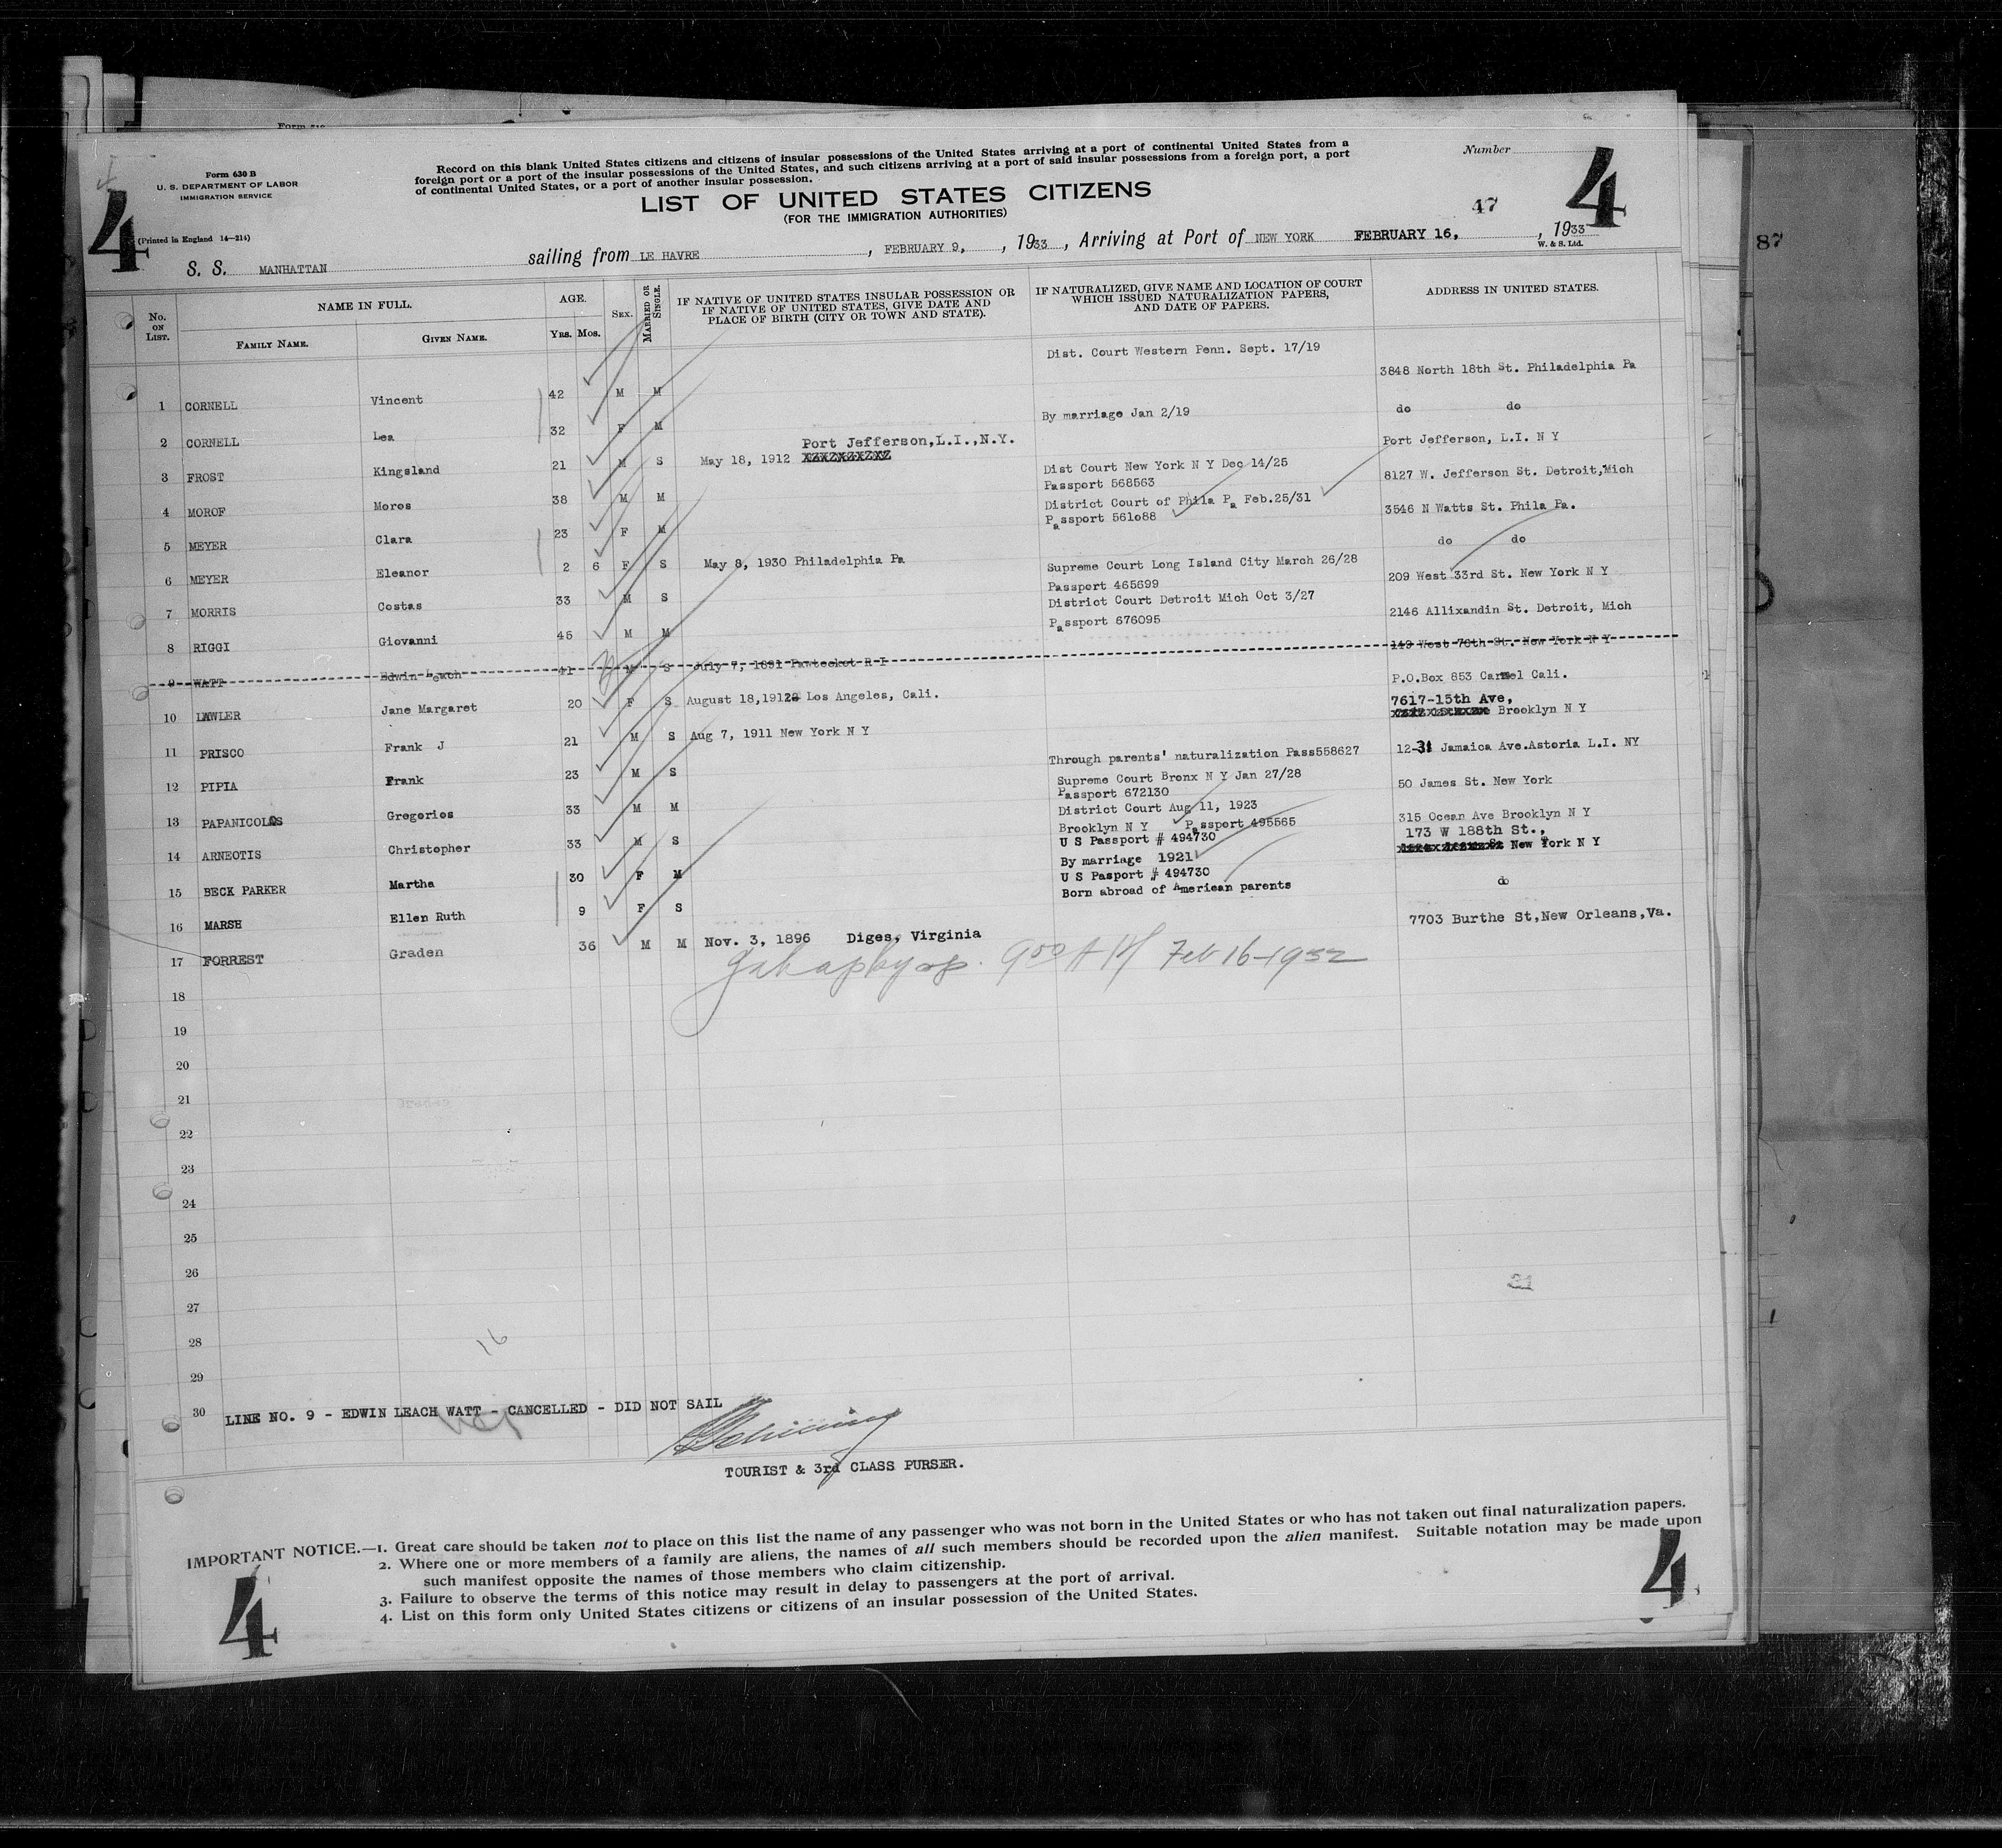 Form 630 B
U. S. DEPARTMENT OF LABOR
IMMIGRATION SERVICE
Record on this blank United States citizens and citizens of insular possessions of the United States arriving at a port of continental United States from a
foreign port or a port of the insular possessions of the United States, and such citizens arriving at a port of said insular possessions from a foreign port, a port
of continental United States, or a port of another insular possession.
Number
4
4
LIST OF UNITED STATES CITIZENS
(FOR THE IMMIGRATION AUTHORITIES)
47
(Printed in England 14—214)
S. S. MANHATTAN sailing from LE HAVRE , FEBRUARY 9, , 1933 , Arriving at Port of NEW YORK FEBRUARY 16, , 1933
W. & S. Ltd.
87
No. ON LIST. NAME IN FULL. FAMILY NAME. GIVEN NAME. AGE. YRS. MOS. SEX. MARRIED OR SINGLE. IF NATIVE OF UNITED STATES INSULAR POSSESSION OR IF NATIVE OF UNITED STATES, GIVE DATE AND PLACE OF BIRTH (CITY OR TOWN AND STATE). IF NATURALIZED, GIVE NAME AND LOCATION OF COURT WHICH ISSUED NATURALIZATION PAPERS, AND DATE OF PAPERS. ADDRESS IN UNITED STATES.
1 CORNELL Vincent 42 M M Dist. Court Western Penn. Sept. 17/19 3848 North 18th St. Philadelphia Pa
2 CORNELL Lea 32 F M By marriage Jan 2/19 do do
3 FROST Kingsland 21 M S May 18, 1912 Port Jefferson,L.I.,N.Y. Port Jefferson, L.I. N Y
4 MOROF Moros 38 M M Dist Court New York N Y Dec 14/25 Passport 568563 8127 W. Jefferson St. Detroit,Mich
5 MEYER Clara 23 F M District Court of Phila Pa Feb.25/31 Passport 561088 3546 N Watts St. Phila Pa.
6 MEYER Eleanor 2 6 F S May 8, 1930 Philadelphia Pa do do
7 MORRIS Costas 33 M S Supreme Court Long Island City March 26/28 Passport 465699 209 West 33rd St. New York N Y
8 RIGGI Giovanni 45 M M District Court Detroit Mich Oct 3/27 Passport 676095 2146 Allixandin St. Detroit, Mich
9 WATT Edwin Leach 41 M S July 7, 1891 Pawtecket R I 149 West 78th St. New York N Y
10 LAWLER Jane Margaret 20 F S August 18,1912 Los Angeles, Cali. P.O.Box 853 Carmel Cali.
11 PRISCO Frank J 21 M S Aug 7, 1911 New York N Y 7617-15th Ave, Brooklyn N Y
12 PIPIA Frank 23 M S Through parents' naturalization Pass558627 12-31 Jamaica Ave.Astoria L.I. NY
13 PAPANICOLAS Gregorios 33 M M Supreme Court Bronx N Y Jan 27/28 Passport 672130 50 James St. New York
14 ARNEOTIS Christopher 33 M S District Court Aug 11, 1923 Brooklyn N Y Passport 495565 315 Ocean Ave Brooklyn N Y
15 BECK PARKER Martha 30 F M U S Passport # 494730 By marriage 1921 173 W 188th St., New York N Y
16 MARSH Ellen Ruth 9 F S U S Pasport # 494730 Born abroad of American parents do
17 FORREST Graden 36 M M Nov. 3, 1896 Diges, Virginia 7703 Burthe St,New Orleans,Va.
900 AM Feb 16-1932
18
19
20
21
22
23
24
25
26
27
28
29
16
30 LINE NO. 9 - EDWIN LEACH WATT - CANCELLED - DID NOT SAIL
TOURIST & 3rd CLASS PURSER.
IMPORTANT NOTICE.—1. Great care should be taken not to place on this list the name of any passenger who was not born in the United States or who has not taken out final naturalization papers.
2. Where one or more members of a family are aliens, the names of all such members should be recorded upon the alien manifest. Suitable notation may be made upon
such manifest opposite the names of those members who claim citizenship.
3. Failure to observe the terms of this notice may result in delay to passengers at the port of arrival.
4. List on this form only United States citizens or citizens of an insular possession of the United States.
4
4